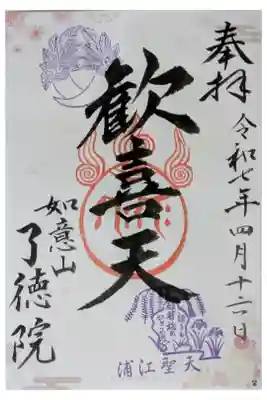 奉拝
令和七年四月十二日
歡喜天
如意山
了徳院
浦江聖天